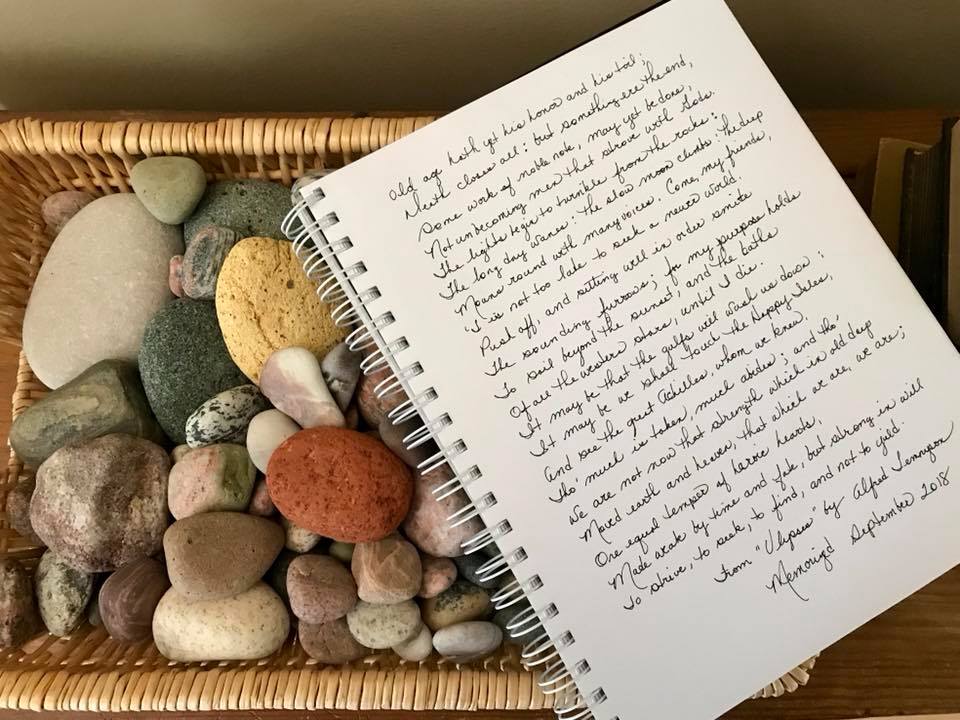 Old age hath yet his honor and his toil;
Death closes all: but something ere the end,
Some work of noble note, may yet be done,
Not unbecoming men that strove with Gods.
The lights begin to twinkle from the rocks:
The long day wanes: the slow moon climbs: the deep
Moans round with many voices. Come, my friends,
'Tis not too late to seek a newer world.
Push off, and sitting well in order smite
The sounding furrows; for my purpose holds
To sail beyond the sunset, and the baths
Of all the western stars, until I die.
It may be that the gulfs will wash us down:
It may be we shall touch the Happy Isles,
And see the great Achilles, whom we knew.
Tho' much is taken, much abides; and tho'
We are not now that strength which in old days
Moved earth and heaven, that which we are, we are;
One equal temper of heroic hearts,
Made weak by time and fate, but strong in will
To strive, to seek, to find, and not to yield.
From "Ulysses" by Alfred Tennyson
Memorized September 2018